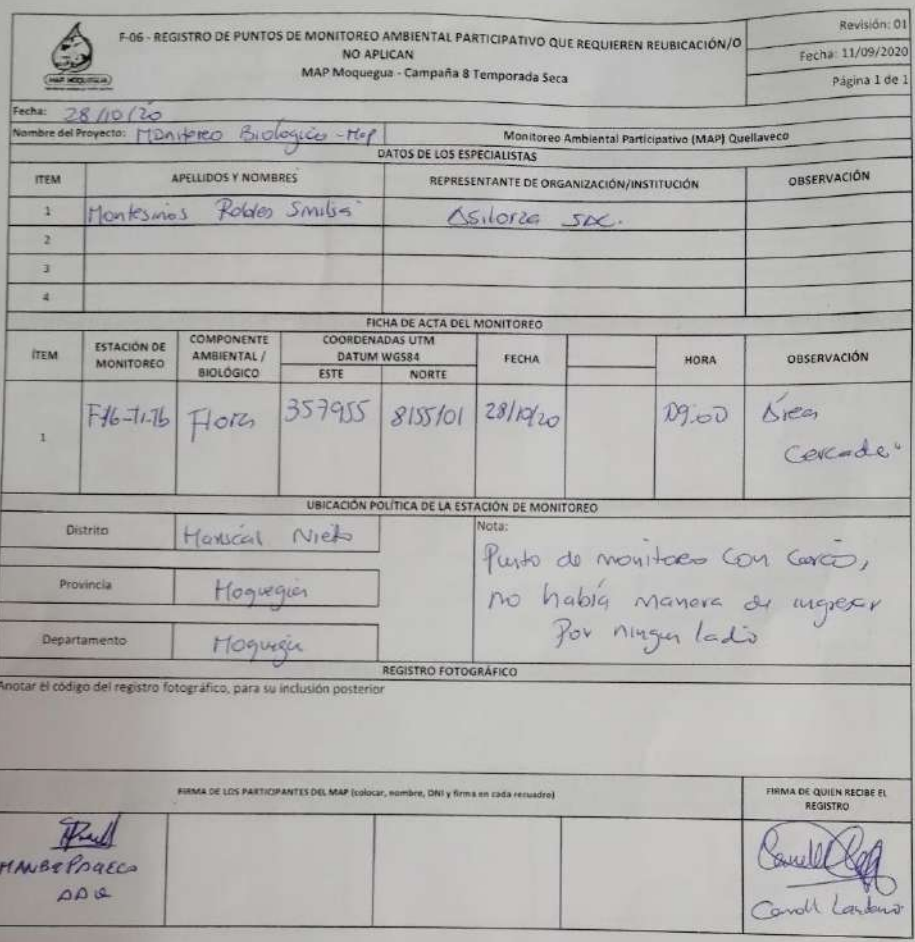 F-06 - REGISTRO DE PUNTOS DE MONITOREO AMBIENTAL PARTICIPATIVO QUE REQUIEREN REUBICACIÓN/O
NO APLICAN
MAP Moquegua - Campaña 8 Temporada Seca
MAP MOQUEGUA
Revisión: 01
Fecha: 11/09/2020
Página 1 de 1
Fecha: 28/10/20
Nombre del Proyecto: Monitoreo Biologico - Map Monitoreo Ambiental Participativo (MAP) Quellaveco
DATOS DE LOS ESPECIALISTAS
ITEM APELLIDOS Y NOMBRES REPRESENTANTE DE ORGANIZACIÓN/INSTITUCIÓN OBSERVACIÓN
1 Montesinos Robles Asilorza SAC.
2
3
4
FICHA DE ACTA DEL MONITOREO
ÍTEM ESTACIÓN DE MONITOREO COMPONENTE AMBIENTAL / BIOLÓGICO COORDENADAS UTM DATUM WGS84 FECHA HORA OBSERVACIÓN
ESTE NORTE
1 Flora 357955 8155101 28/10/20 09:00 Área
Cercada
UBICACIÓN POLÍTICA DE LA ESTACIÓN DE MONITOREO
Distrito Mariscal Nieto
Provincia Moquegua
Departamento Moquegua
Nota:
Punto de monitoreo con cerco,
no había manera de ingresar
Por ningun lado
REGISTRO FOTOGRÁFICO
Anotar el código del registro fotográfico, para su inclusión posterior
FIRMA DE LOS PARTICIPANTES DEL MAP (colocar, nombre, DNI y firma en cada recuadro)
FIRMA DE QUIEN RECIBE EL
REGISTRO